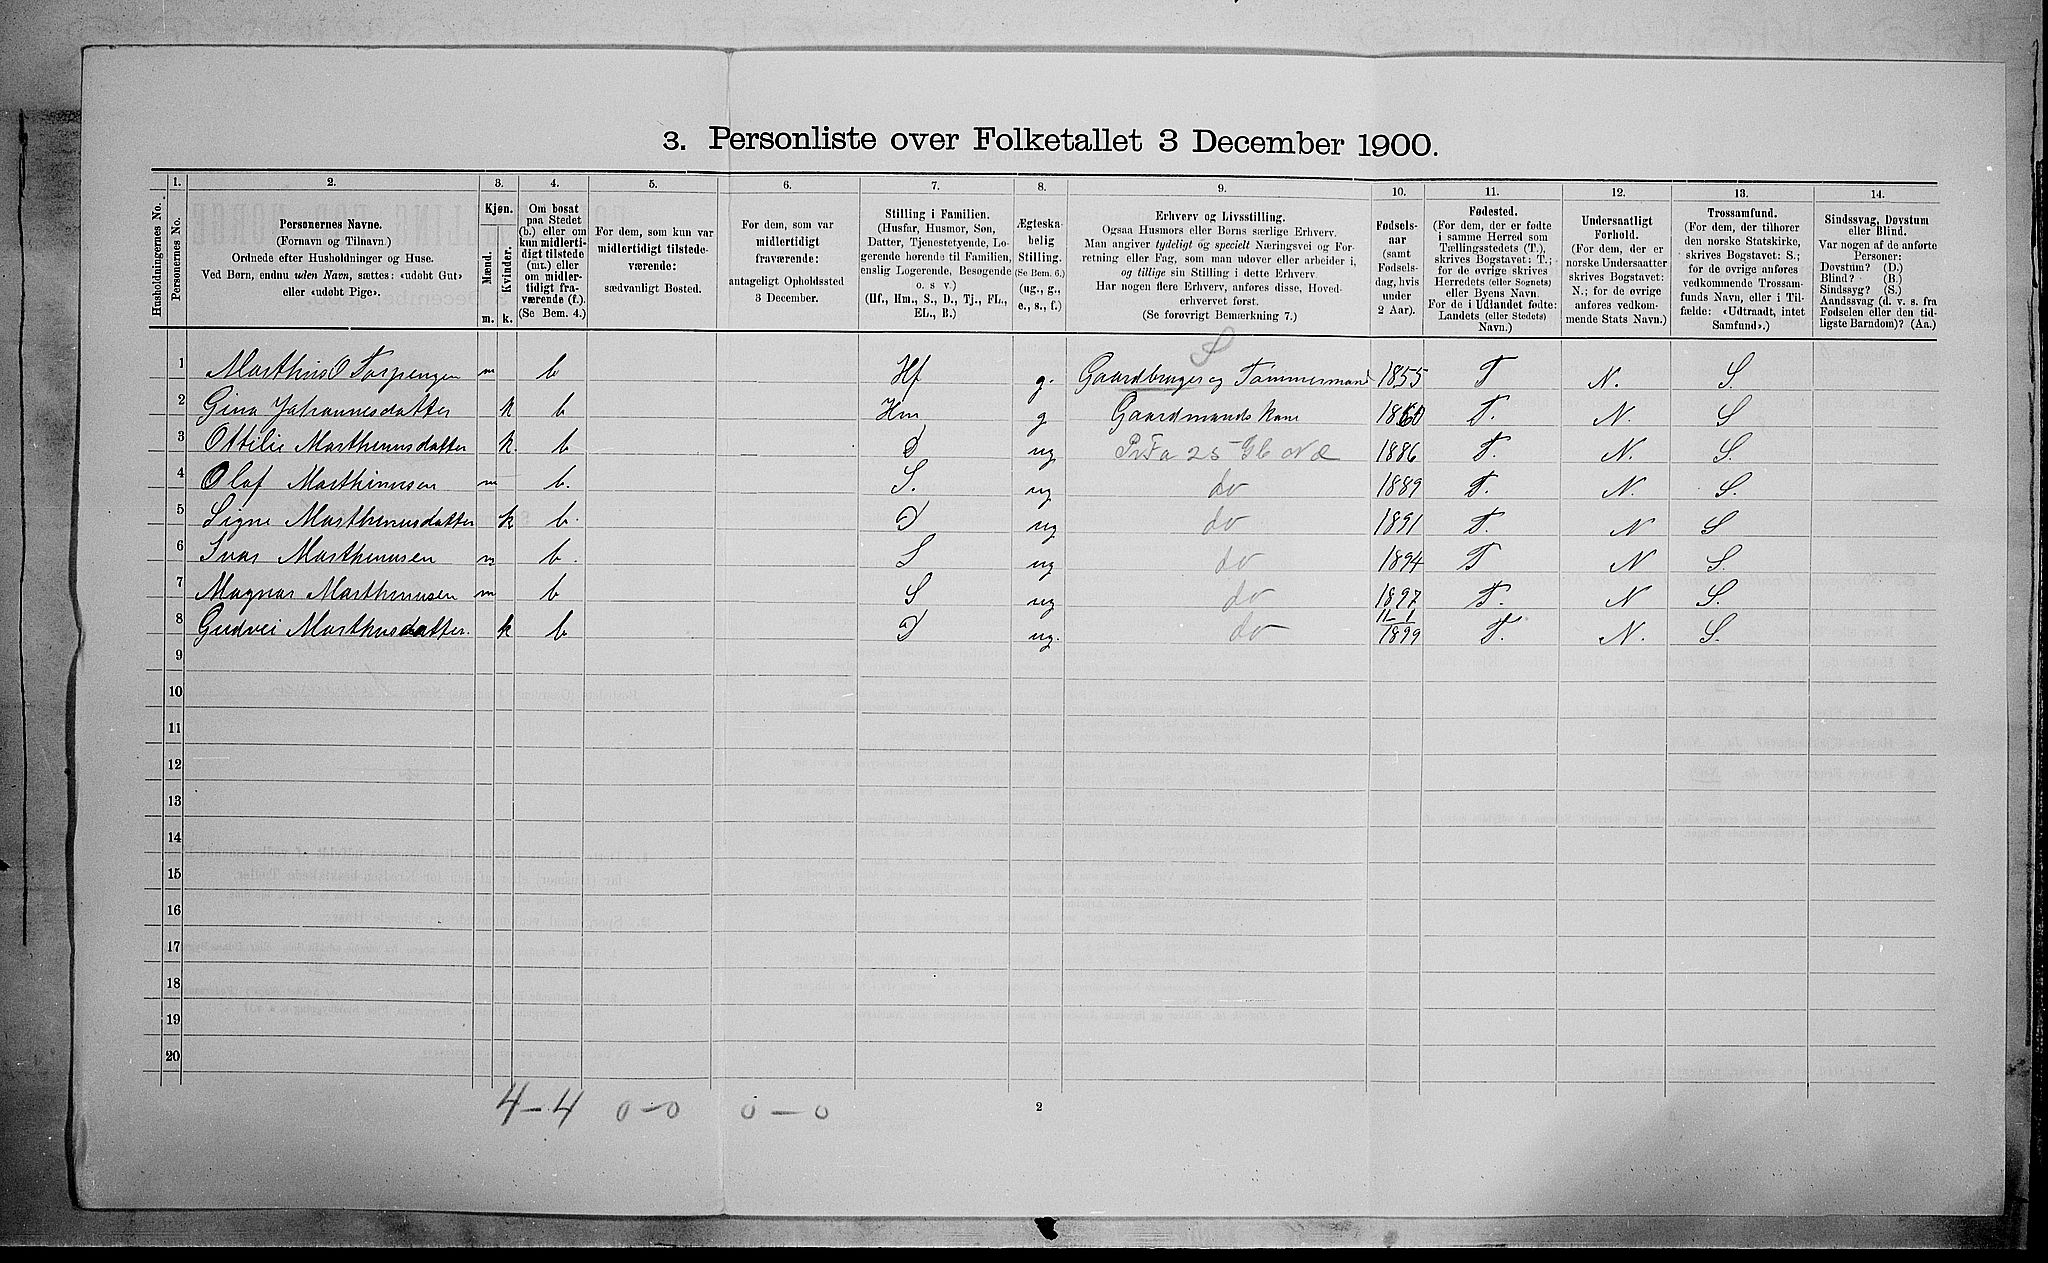 3. Personliste over Folketallet 3 December 1900.
1. 2. 3. 4. 5. 6. 7. 8. 9. 10. 11. 12. 13. 14.
Husholdningernes No.
Personernes No.
Personernes Navne.
(Fornavn og Tilnavn.)
Ordnede efter Husholdninger og Huse.
Ved Børn, endnu uden Navn, sættes: «udøbt Gut»
eller «udøbt Pige».
Kjøn.
Mænd.
Kvinder.
m. k.
Om bosat
paa Stedet
(b.) eller om
kun midlerti-
digt tilstede
(mt.) eller
om midler-
tidigt fra-
værende (f.).
(Se Bem. 4.)
For dem, som kun var
midlertidigt tilstede-
værende:
sædvanligt Bosted.
For dem, som var
midlertidigt
fraværende:
antageligt Opholdssted
3 December.
Stilling i Familien.
(Husfar, Husmor, Søn,
Datter, Tjenestetyende, Lo-
gerende hørende til Familien,
enslig Logerende, Besøgende
o. s. v.)
(Hf., Hm., S., D., Tj., FL.,
EL., B.)
Ægteska-
belig
Stilling.
(Se Bem. 6.)
(ug., g.,
e., s., f.)
Erhverv og Livsstilling.
Ogsaa Husmors eller Børns særlige Erhverv.
Man angiver tydeligt og specielt Næringsvei og For-
retning eller Fag, som man udøver eller arbeider i,
og tillige sin Stilling i dette Erhverv.
Har nogen flere Erhverv, anføres disse, Hoved-
erhvervet først.
(Se forøvrigt Bemærkning 7.)
Fødsels-
aar
(samt
Fødsels-
dag, hvis
under
2 Aar).
Fødested.
(For dem, der er fødte
i samme Herred som
Tællingsstedets (T.),
skrives Bogstavet: T.;
for de øvrige skrives
Herredets (eller Sognets)
eller Byens Navn.
For de i Udlandet fødte:
Landets (eller Stedets)
Navn.)
Undersaatligt
Forhold.
(For dem, der er
norske Undersaatter
skrives Bogstavet:
N.; for de øvrige
anføres vedkom-
mende Stats Navn.)
Trossamfund.
(For dem, der tilhører
den norske Statskirke,
skrives Bogstavet: S.;
for de øvrige anføres
vedkommende Trossam-
funds Navn, eller i Til-
fælde: «Udtraadt, intet
Samfund».)
Sindssvag, Døvstum
eller Blind.
Var nogen af de anførte
Personer:
Døvstum? (D.)
Blind? (B.)
Sindssyg? (S.)
Aandssvag (d. v. s. fra
Fødselen eller den tid-
ligste Barndom)? (Aa.)
S
1 Marthius O Torpengen m b Hf g. Gaardbruger og Tømmermand 1855 T N. S.
2 Gina Johannesdatter k b Hm g Gaardmands kone 1860 T. N. S
3 Ottilie Marthinusdatter k. b D ug PrFa 25 Gb Næ 1886 T. N. S.
4 Olaf Marthinusen m b. S. ug do 1889 T. N. S.
5 Signe Marthinusdatter k b. D ug do 1891 T. N S
6 Ivar Marthinusen m b. S ug do 1894 T N S.
7 Magnar Marthinusen m b S ug do 1897 T. N S.
8 Gudvei Marthusdatter. k b D ug. do 11-1 1899 T. N. S.
9
10
11
12
13
14
15
16
17
18
19
20
4-4 0-0 0-0 2